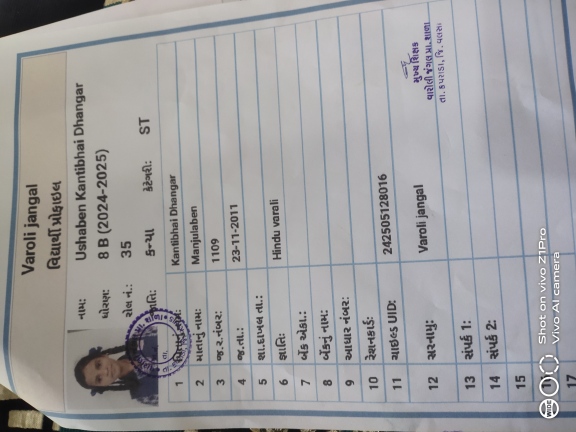 Varoli jangal
વિદ્યાર્થી પ્રોફાઇલ
નામ: Ushaben Kantibhai Dhangar
ધોરણ: 8 B (2024-2025)
રોલ નં.: 35
જાતિ: કન્યા કેટેગરી: ST
1 Kantibhai Dhangar
2 માતાનું નામ: Manjulaben
3 જ.ર.નંબર: 1109
4 જ.તા.: 23-11-2011
5 શા.દાખલ તા.:
6 જ્ઞાતિ: Hindu varoli
7 બેંક એકા.:
8 બેંકનું નામ:
9 આધાર નંબર:
10 રેશનકાર્ડ:
11 ચાઇલ્ડ UID: 242505128016
12 સરનામું: Varoli jangal
13 સંપર્ક 1:
14 સંપર્ક 2:
15
17
મુખ્ય શિક્ષક
વારોલી જંગલ પ્રા. શાળા
તા. કપરાડા, જિ. વલસાડ
Shot on vivo Z1Pro
Vivo AI camera